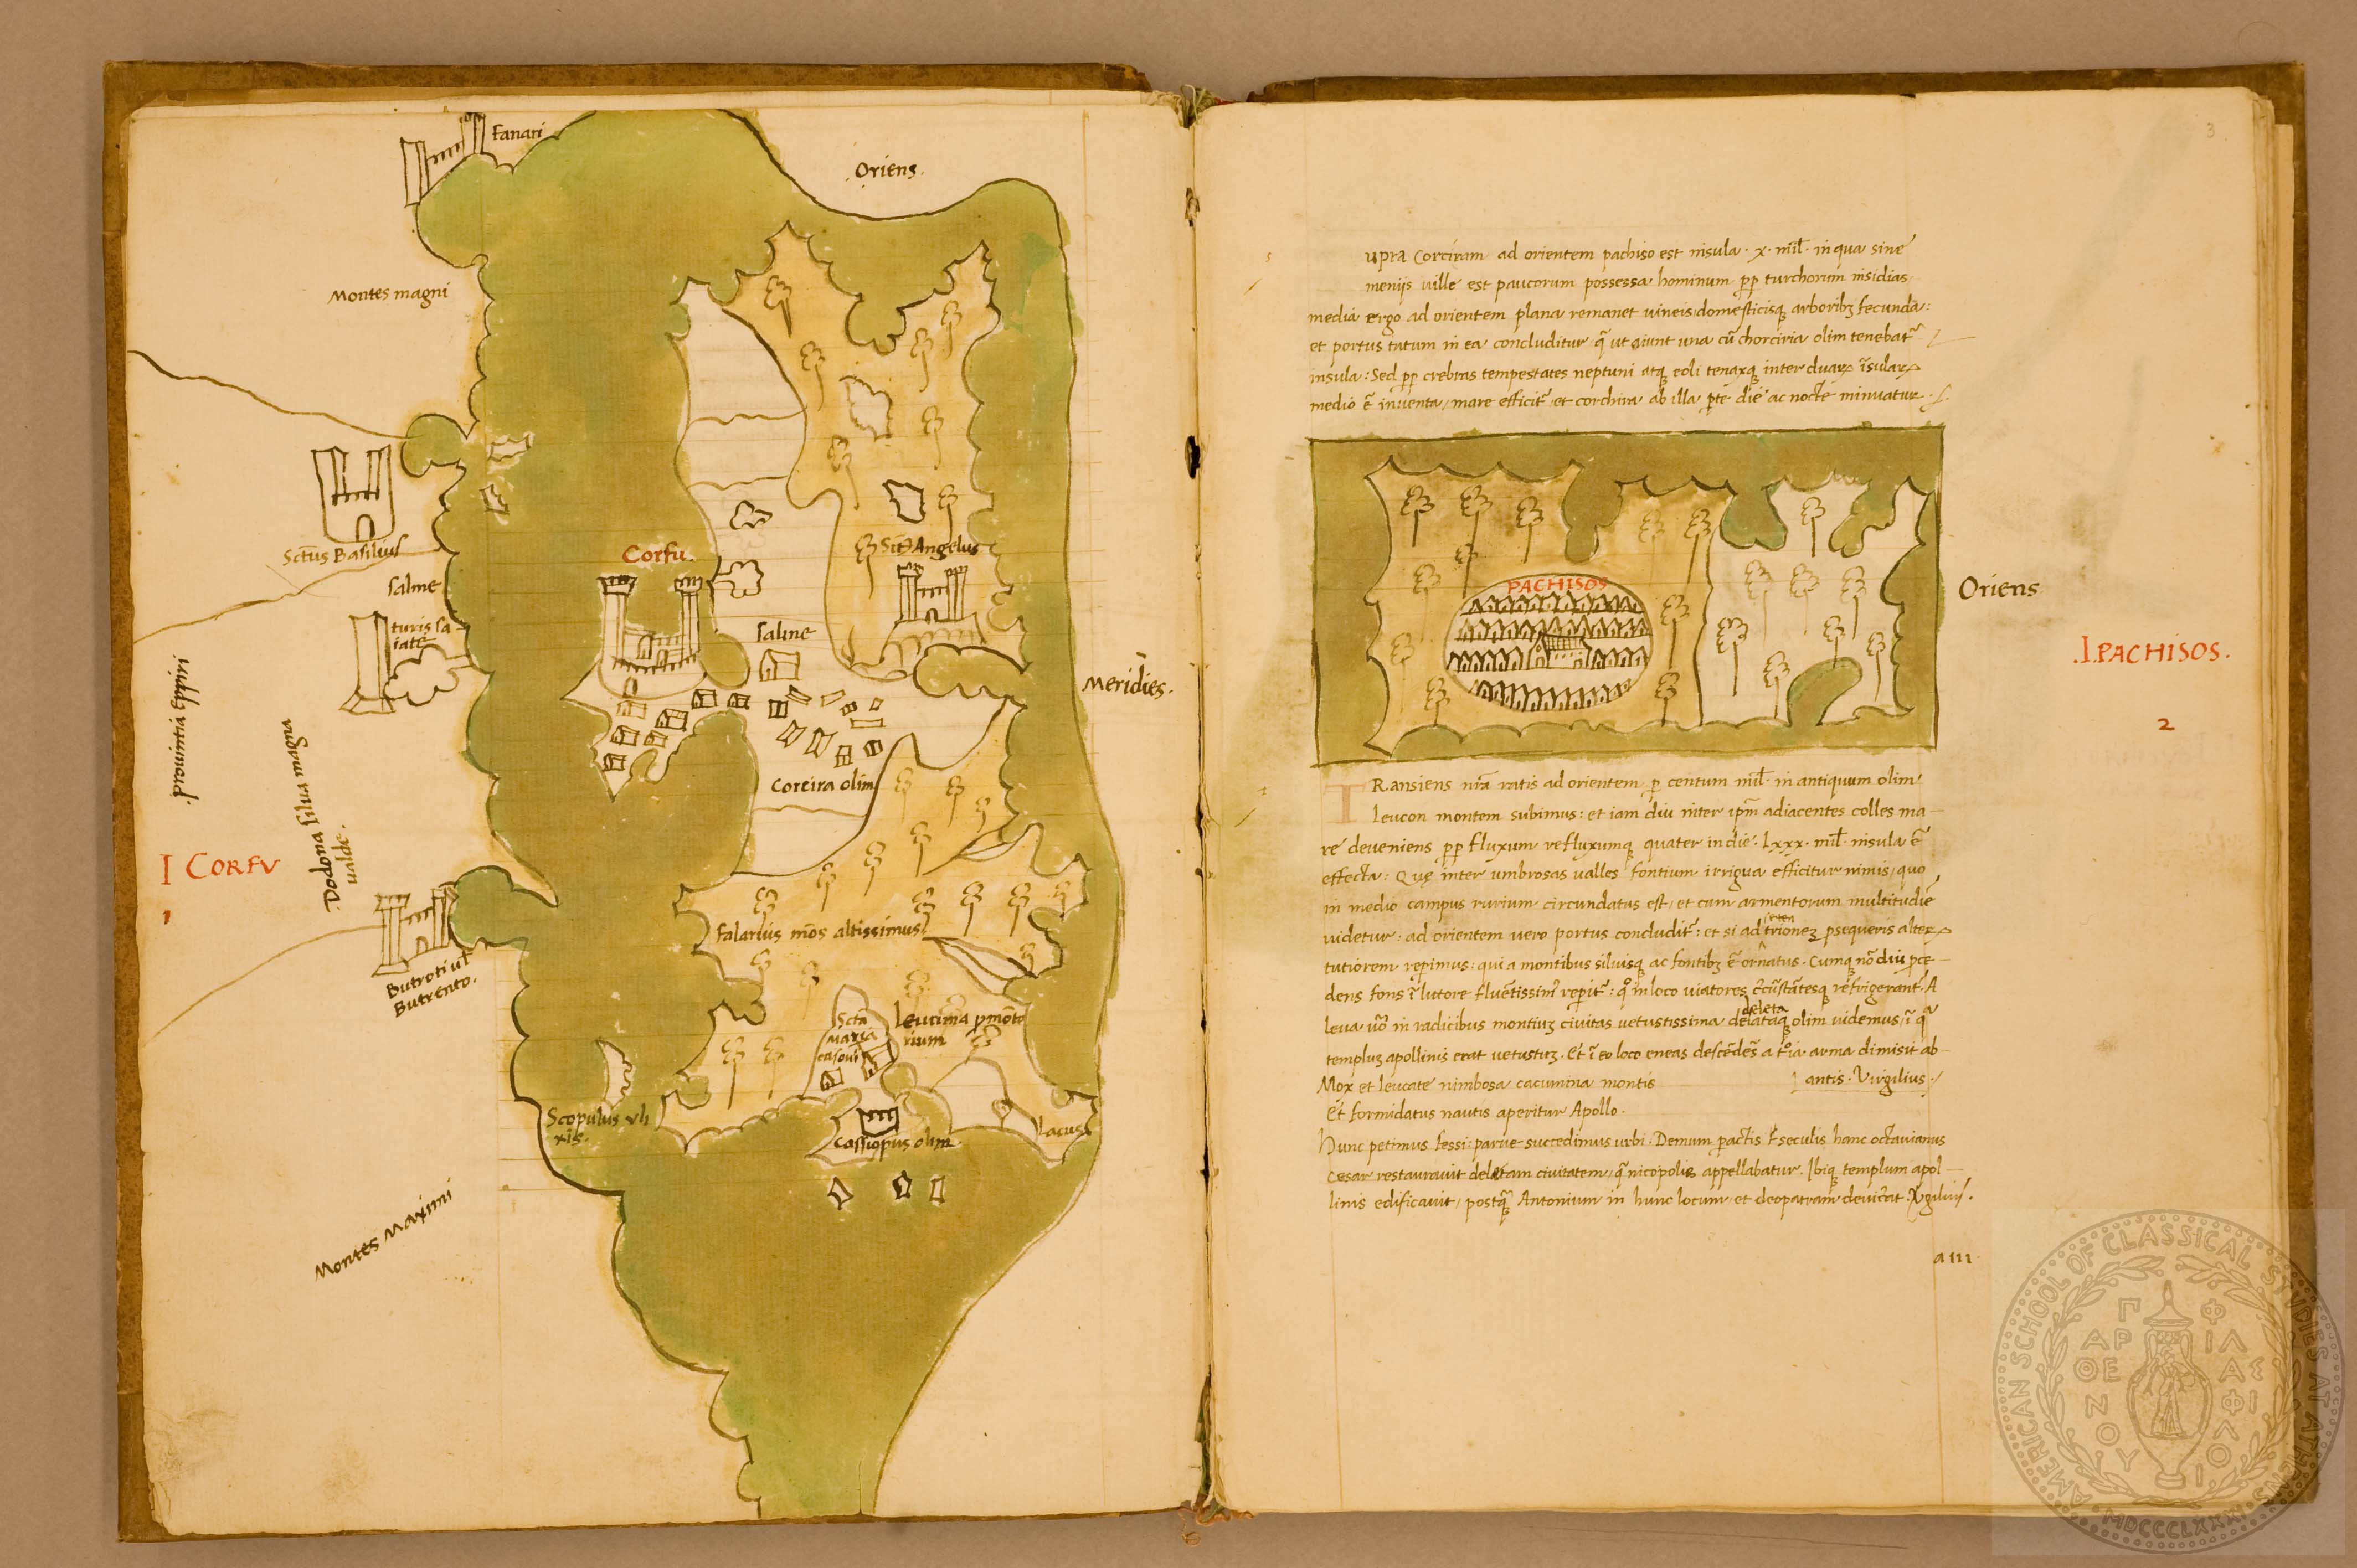 Fanari
Oriens.
Montes magni
Sctūs Basilius
Salme
turis sa-
iate
Corfu.
Sctꝰ Angelus
Saline
Meridies.
.prouintia Eppiri
Dodona silua magna
ualde.
Corcira olim
I CORFV
1
Butroti ul
Butrento.
falarius mōs altissimus
Sctā
maria
casopi
leucima ꝓmōto
rium
Scopulus vli
xis.
Cassiopus olim
Lacus
Montes Maximi
3
upra Corciram ad orientem pachiso est insula · x · mił · in qua sine
menijs uille est paucorum possessa hominum ꝓp turchorum insidias
media ergo ad orientem plana remanet uineis domesticisqꝫ arboribꝫ fecunda:
et portus tatum in ea concluditur q̄ ut aiunt una cū chorciria olim tenebat̄
insula: Sed ꝓp crebras tempestates neptuni atqꝫ eoli tenaxqꝫ inter duaꝝ īsulaꝝ
medio ē inuenta / mare efficit̄ et corchira ab illa ꝑte die ac nocte minuatur
PACHISOS
Oriens
.I.PACHISOS.
2
TRansiens nrā ratis ad orientem ꝑ centum mił · in antiquum olim
leucon montem subimus: et iam diu inter ipm̄ adiacentes colles ma-
re deueniens ꝓp fluxum refluxumqꝫ quater in die · Lxxx · mił · insula ē
effecta: Quę inter umbrosas ualles fontium irrigua efficitur nimis, quo
in medio campus rurium circundatus est, et cum armentorum multitudīe
videtur: ad orientem uero portus concludit̄: et si ad trionez ꝑsequeris alteꝝ
seten
tutiorem reperimus: qui a montibus siluisqꝫ ac fontibꝫ ē ornatus. Cumqꝫ nō diu ꝓce-
dens fons ī lutore fluētissim̄ reperit̄: qͦ in loco viatores c̄cūstātesqꝫ refrigerant̄. A
deleta
leua uͦo in radicibus montiuꝫ ciuitas vetustissima delataqꝫ olim uidemus, ī qᵃ
templuꝫ apollinis erat vetustuꝫ. Et ī eo loco eneas descēdēs a tͦia arma dimisit ab
Mox et leucate nimbosa cacumina montis antis. Virgilius.
Et formidatus nautis aperitur Apollo.
Hunc petimus fessi: parue succedimus urbi. Demum ꝑactis seculis hanc octauianus
Cesar restaurauit deletam ciuitatem, q̄ nicopolis appellabatur. Ibiqꝫ templum apol-
linis edificauit, postqᵃ Antonium in hunc locum et cleopatram deuicerat. Virgilius.
a III
AMERICAN SCHOOL OF CLASSICAL STUDIES AT ATHENS
MDCCCLXXXI
ΠΑΡΘΕΝΟΥ
ΦΙΛΑΣ ΦΙΛΟΙ